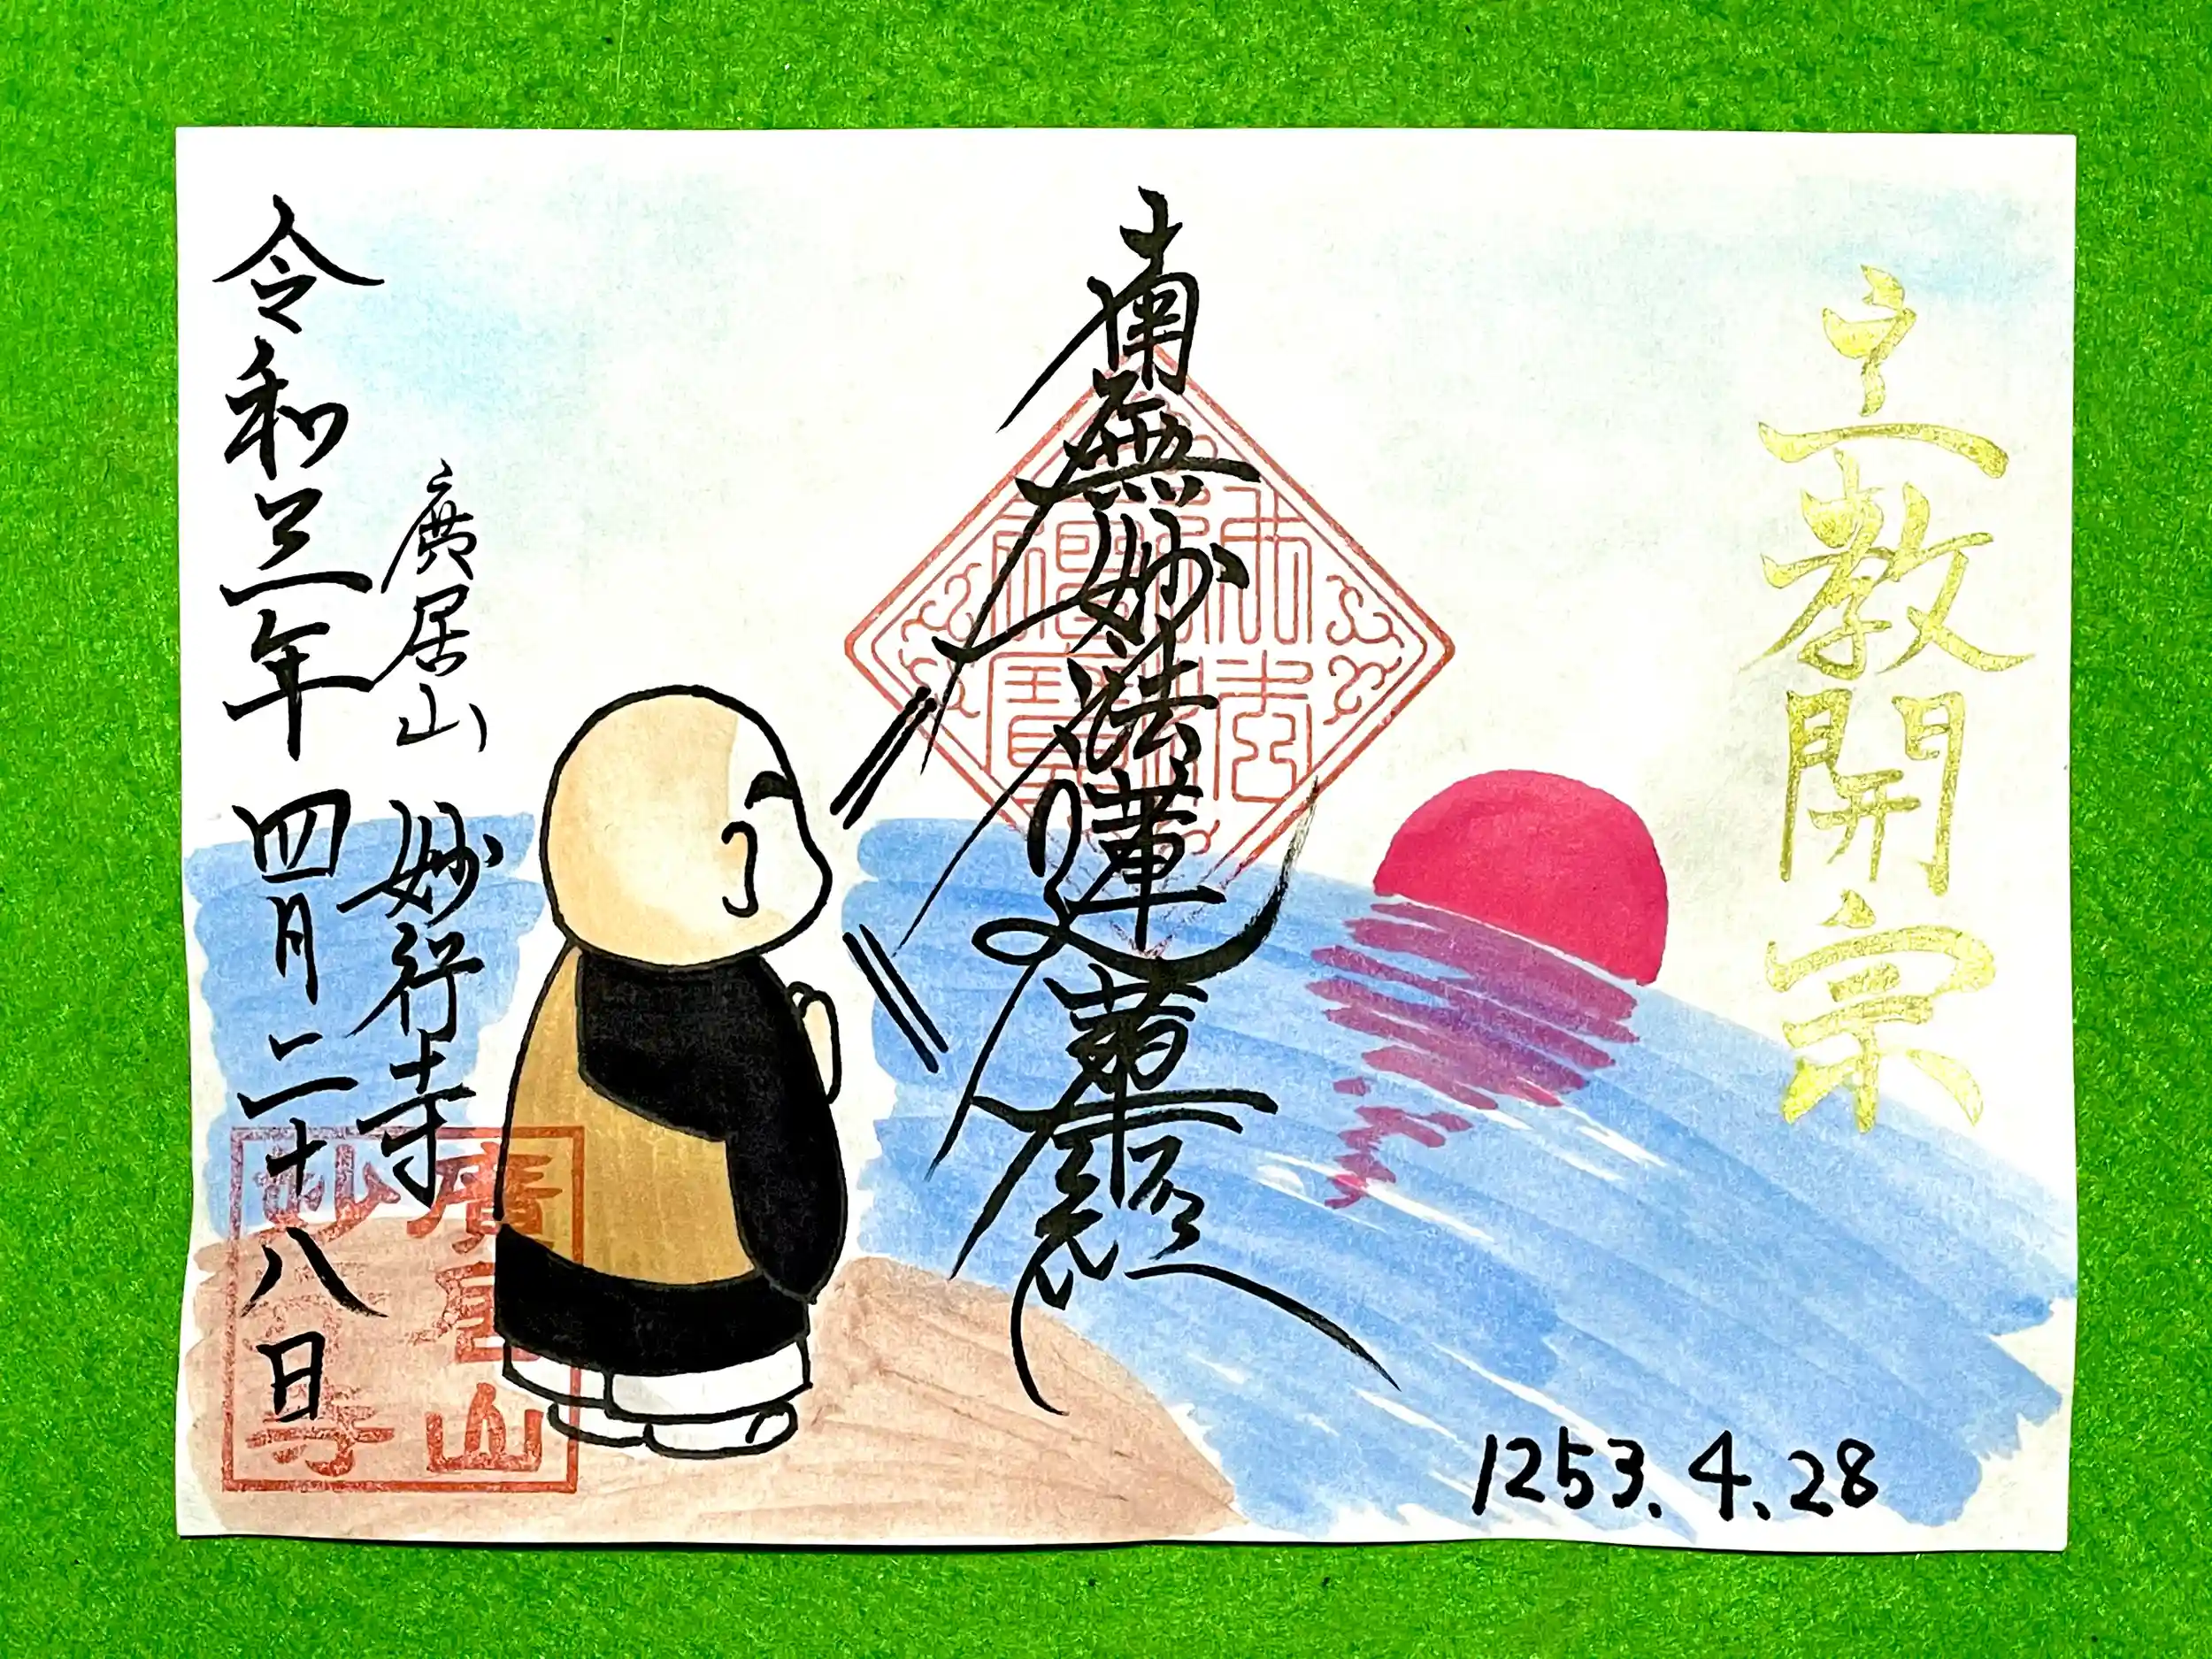 立教開宗
南無妙法蓮華経
廣居山
妙行寺
令和三年 四月二十八日
1253.4.28
廣居山
妙行寺